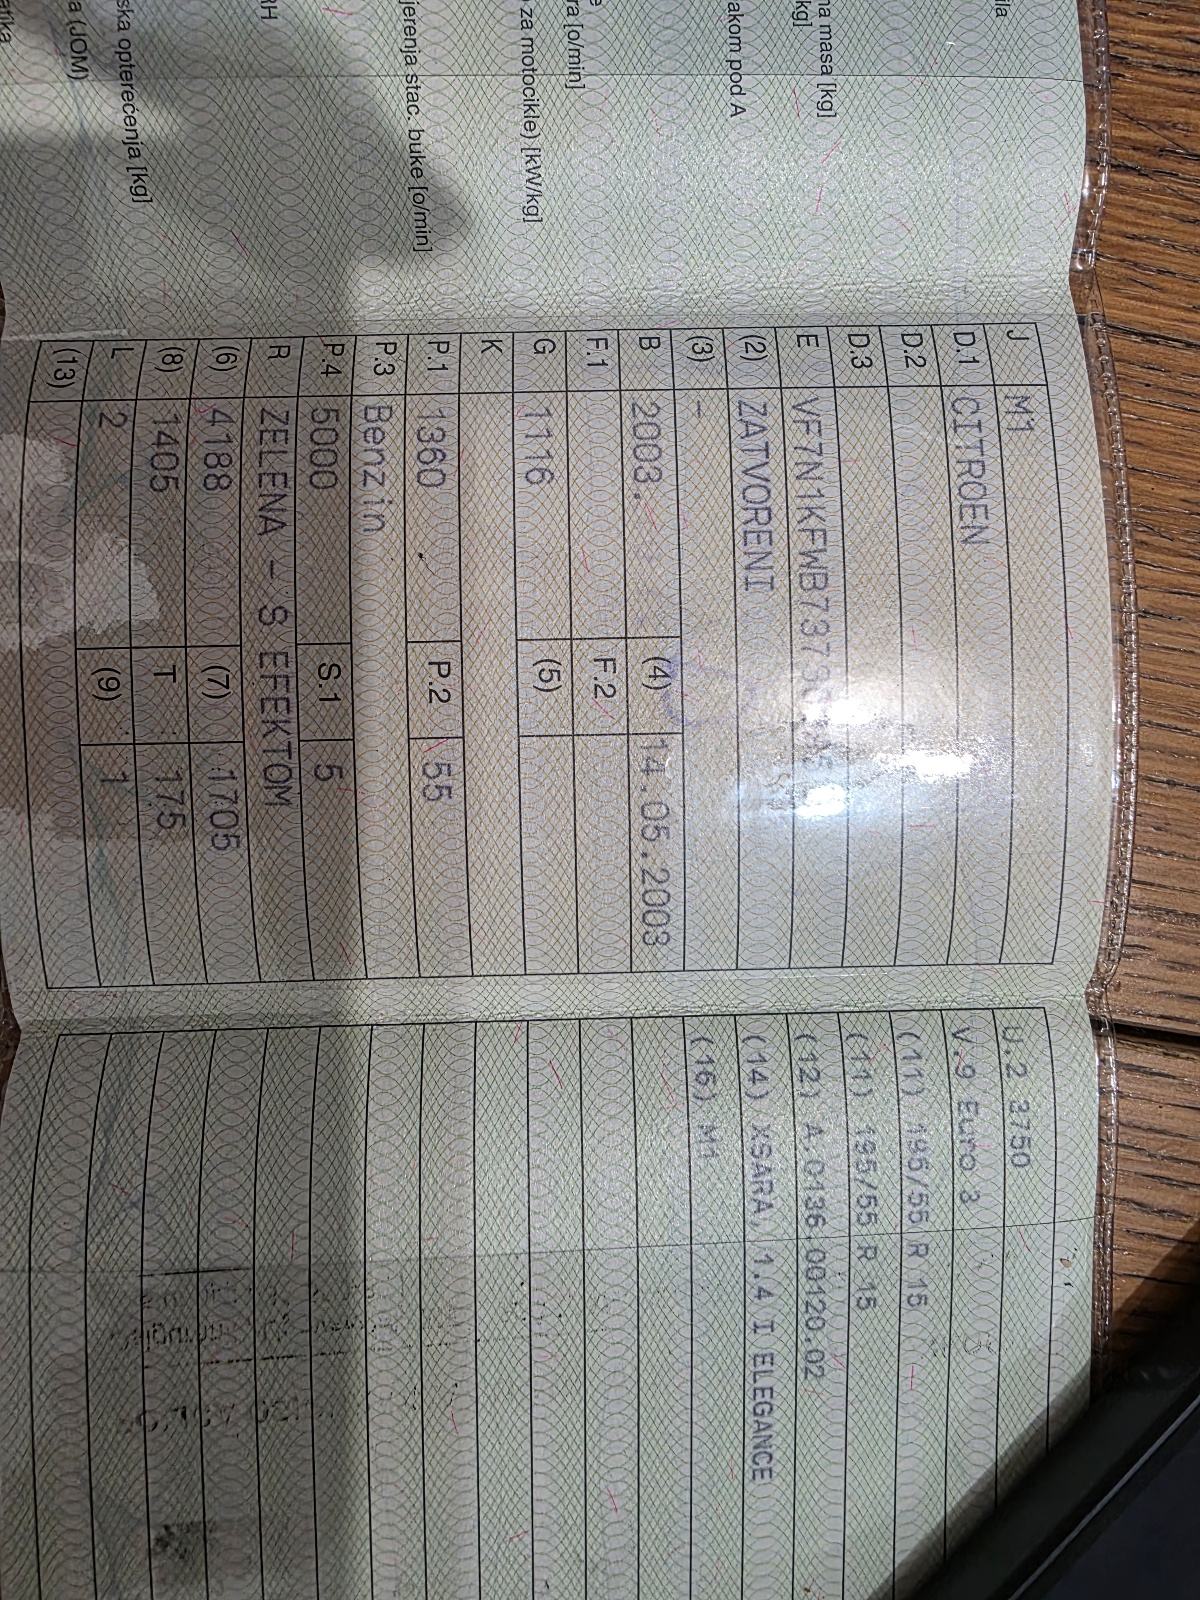 ila
na masa [kg]
kg]
akom pod A
e
ra [o/min]
za motocikle) [kW/kg]
jerenja stac. buke [o/min]
RH
ska opterećenja [kg]
a (JOM)
atika
J M1
D.1 CITROEN
D.2
D.3
E
(2) ZATVORENI
(3) -
B 2003. (4) 14.05.2003
F.1 F.2
G 1116 (5)
K
P.1 1360 P.2 55
P.3 Benzin
P.4 5000 S.1 5
R ZELENA - S EFEKTOM
(6) 4188 (7) 1705
(8) 1405 T 175
L 2 (9) 1
(13)
U.2 3750
V.9 Euro 3
(11) 195/55 R 15
(11) 195/55 R 15
(12) A.0136.00120.02
(14) XSARA, 1.4 I ELEGANCE
(16) M1